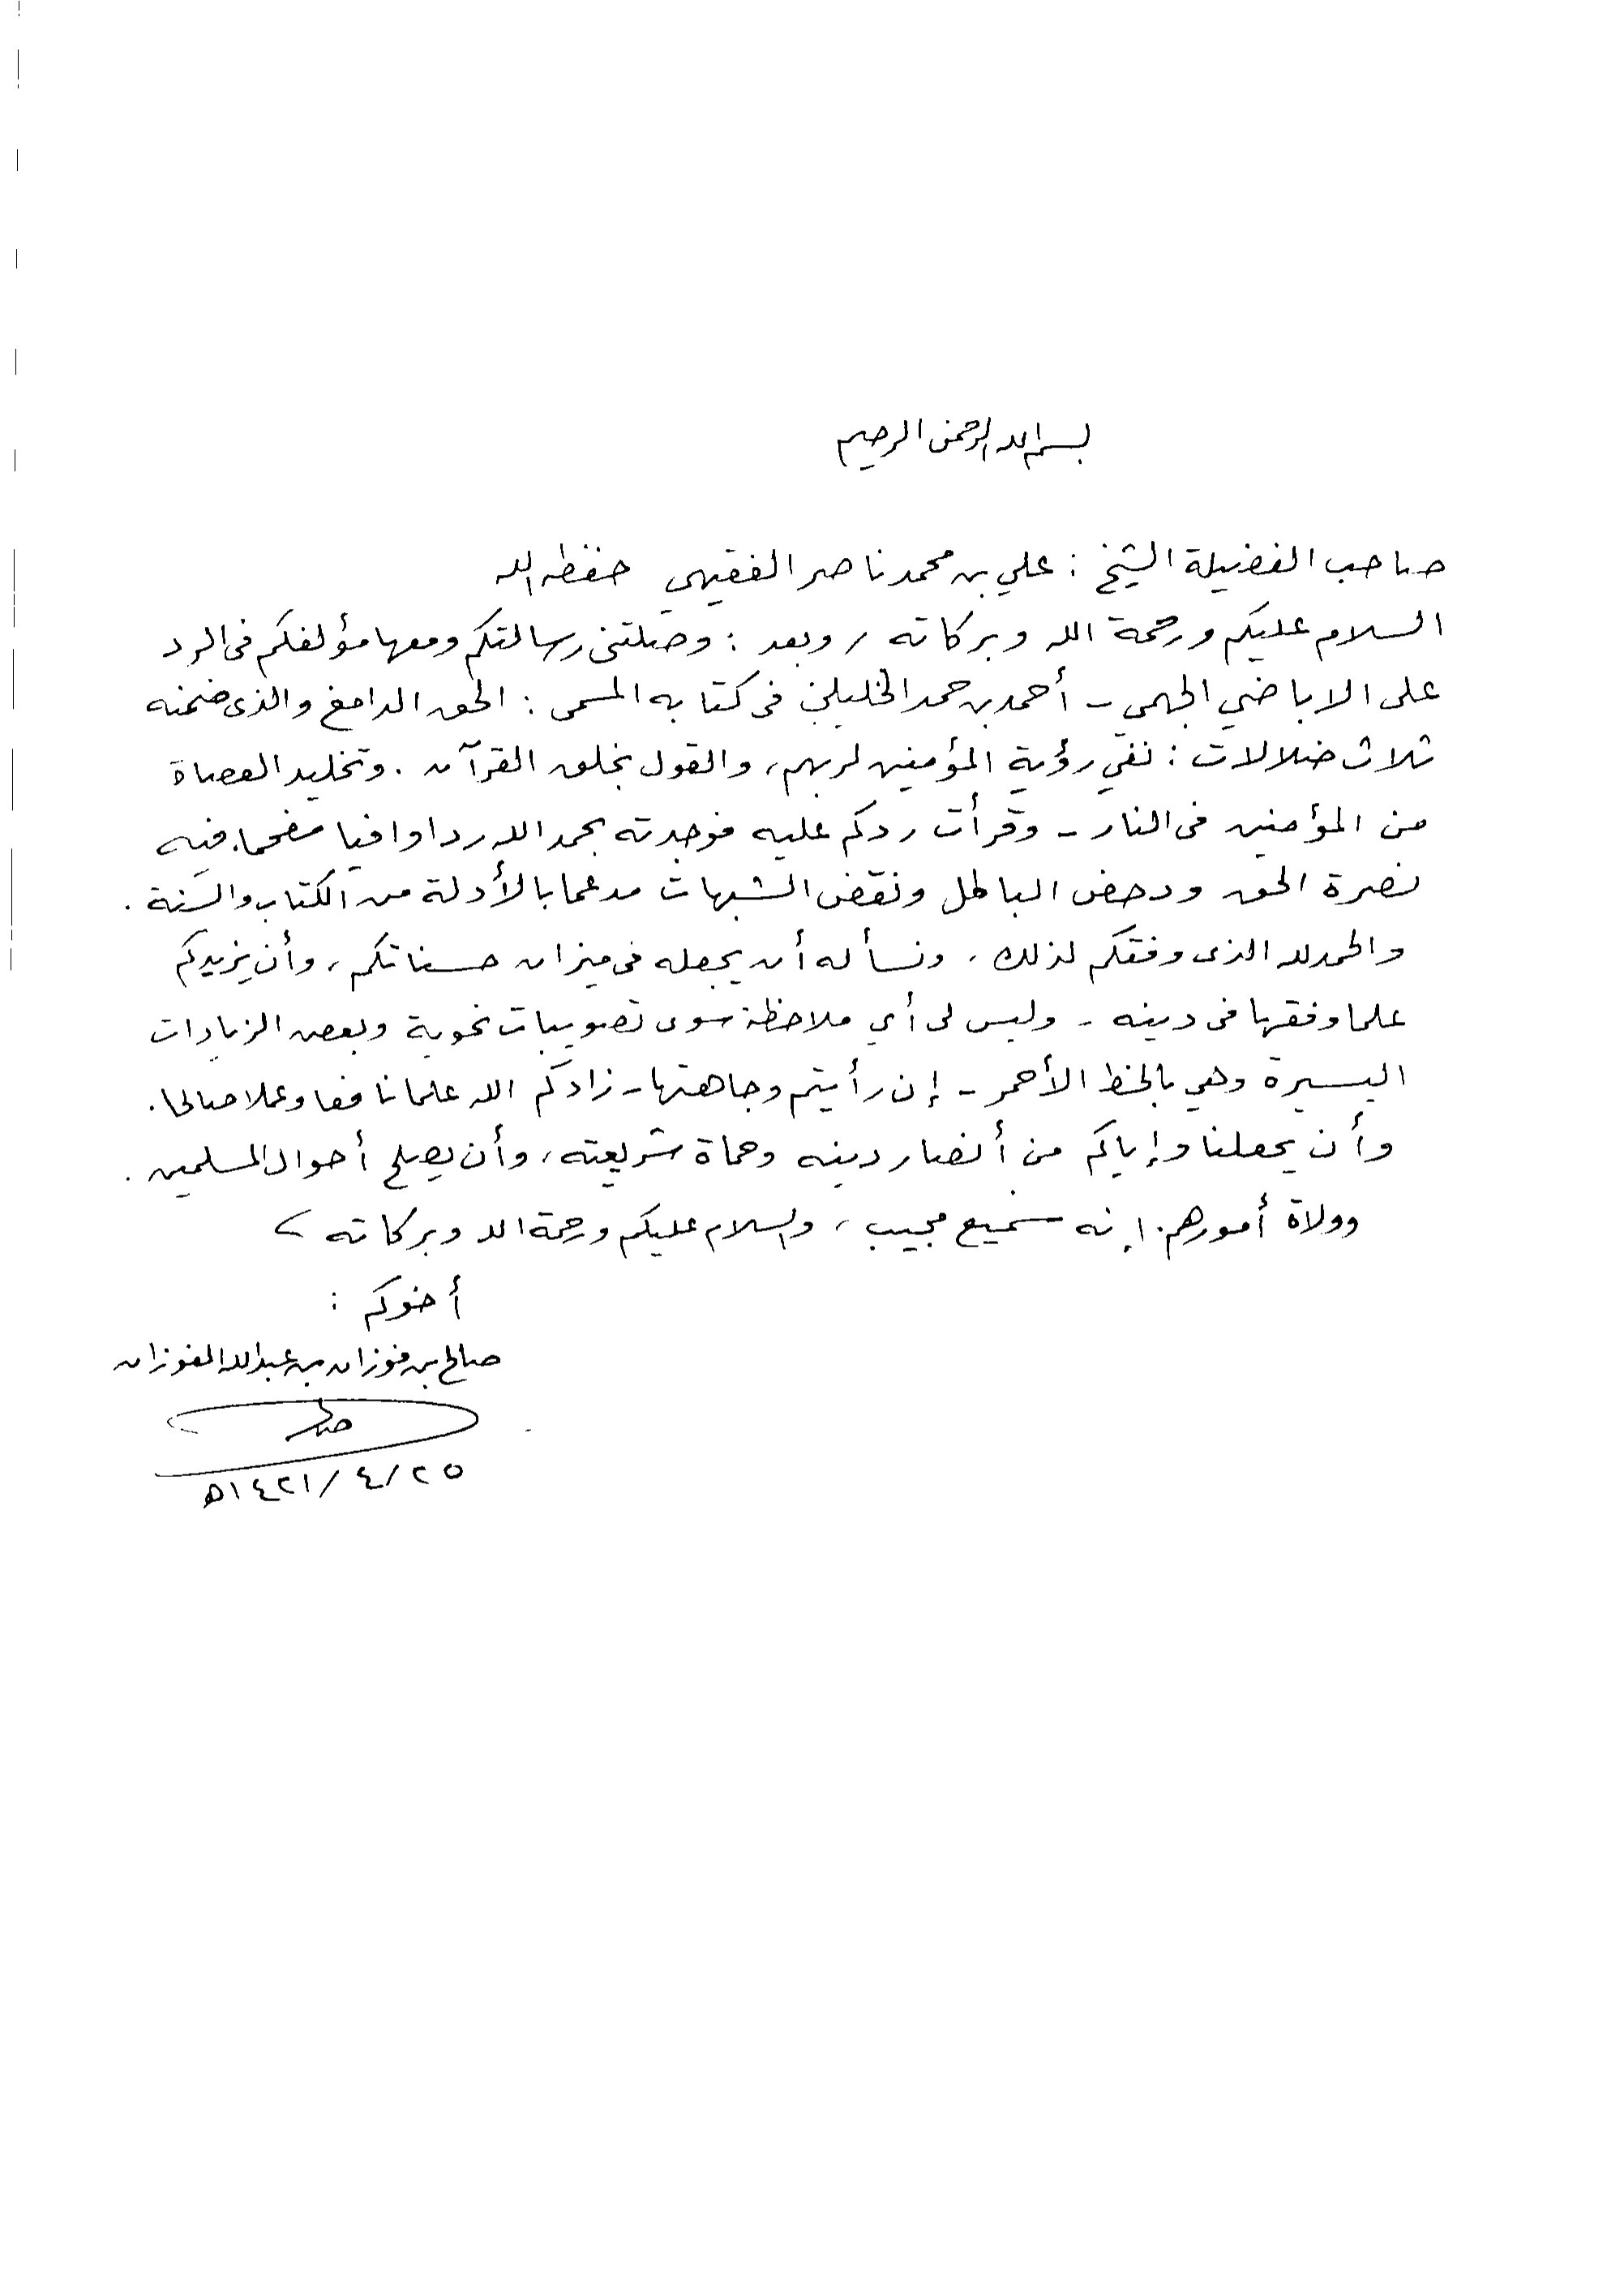 بسم الله الرحمن الرحيم
صاحب الفضيلة الشيخ : علي بن محمد ناصر الفقيهي حفظه الله
السلام عليكم ورحمة الله وبركاته / وبعد : وصلتني رسالتكم ومعها مؤلفكم في الرد
على الاباضي الجهمي - أحمد بن حمد الخليلي في كتابه المسمى : الحق الدامغ والذى ضمنه
ثلاث ضلالات : نفي رؤية المؤمنين لربهم، والقول بخلق القرآن . وتخليد العصاة
من المؤمنين في النار - وقرأت ردكم عليه فوجدته بحمد الله ردا وافيا مفحما. فيه
نصرة الحق ودحض الباطل ونقض الشبهات مدعما بالأدلة من الكتاب والسنة .
والحمد لله الذى وفقكم لذلك، ونسأله أن يجعله في ميزان حسناتكم، وأن يزيدكم
علما وفقها في دينه - وليس لى أي ملاحظة سوى تصويبات نحوية وبعض الزيادات
اليسيرة وهي بالخط الأحمر - إن رأيتم وجاهتها - زادكم الله علما نافعا وعملا صالحا.
وأن يجعلنا وإياكم من أنصار دينه وحماة شريعته، وأن يصلح أحوال المسلمين .
وولاة أمورهم. إنه سميع مجيب، والسلام عليكم ورحمة الله وبركاته
أخوكم :
صالح بن فوزان بن عبدالله الفوزان
صالح
٢٥/٤/١٤٢١ه